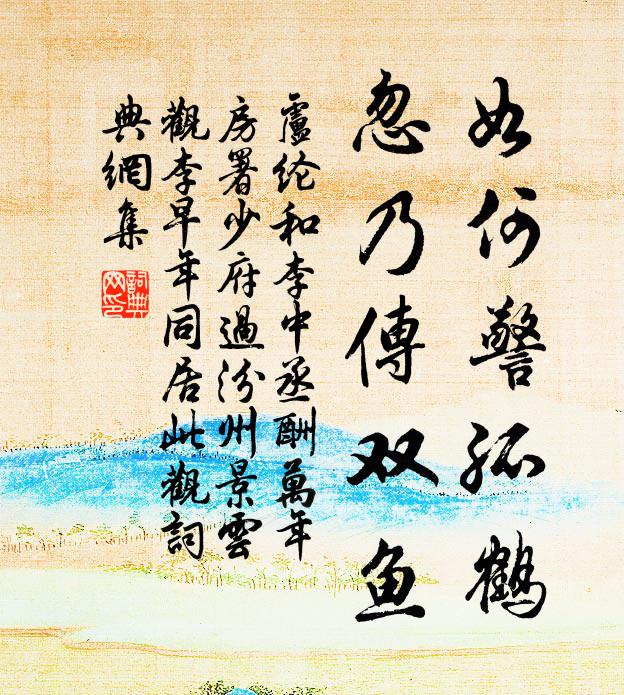 如何警孤鶴
忽乃傳双鱼
盧纶和李中丞酬萬年
房署少府過汾州景雲
觀李早年同居此觀詞
典網集
詞典
网印